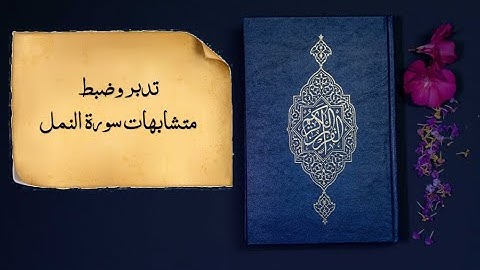 تدبر وضبط
متشابهات سورة النمل
القرآن الكريم